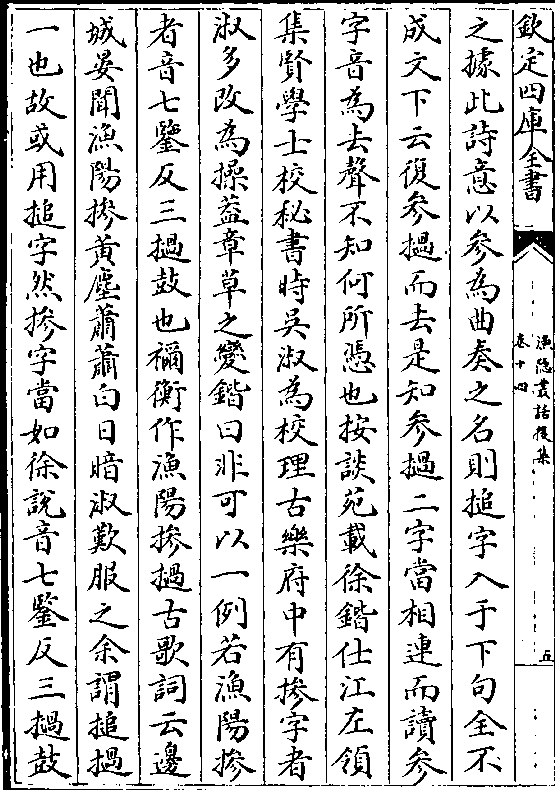 欽定四庫全書
漁隱叢話後集
卷十四
五
之據此詩意以參為曲奏之名則搥字入于下句全不
成文下云復參撾而去是知參撾二字當相連而讀參
字音為去聲不知何所憑也按談苑載徐鍇仕江左領
集賢學士校秘書時吳淑為校理古樂府中有摻字者
淑多改為操葢章草之變鍇曰非可以一例若漁陽摻
者音七鑒反三撾鼓也禰衡作漁陽摻撾古歌詞云邊
城晏聞漁陽摻黃塵蕭蕭白日暗淑歎服之余謂搥撾
一也故或用搥字然摻字當如徐說音七鑒反三撾鼓